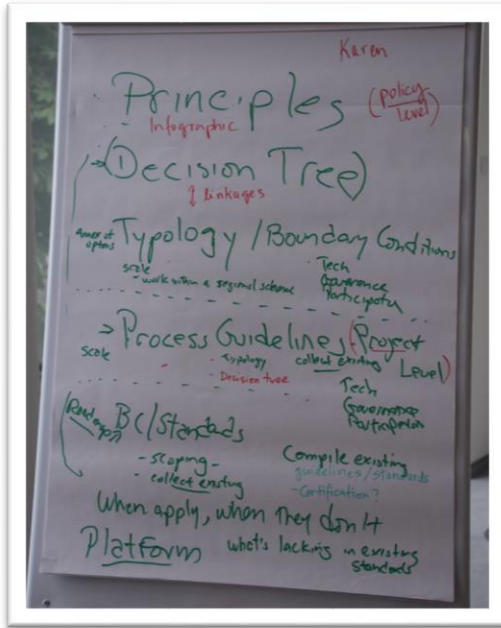 Karen
Principles (policy level)
Infographic
→ (① Decision Tree)
↕ linkages
Typology / Boundary Conditions
scale
- work within a regional scheme
- Tech
Governance
Participation
→ Process Guidelines (Project Level)
scale
- Typology
collect existing
- Decision tree
Tech
Governance
Participation
BC/Standards
- scoping -
- collect existing
Compile existing
guidelines/standards
- Certification?
When apply, when they don't
Platform
what's lacking in existing
standards